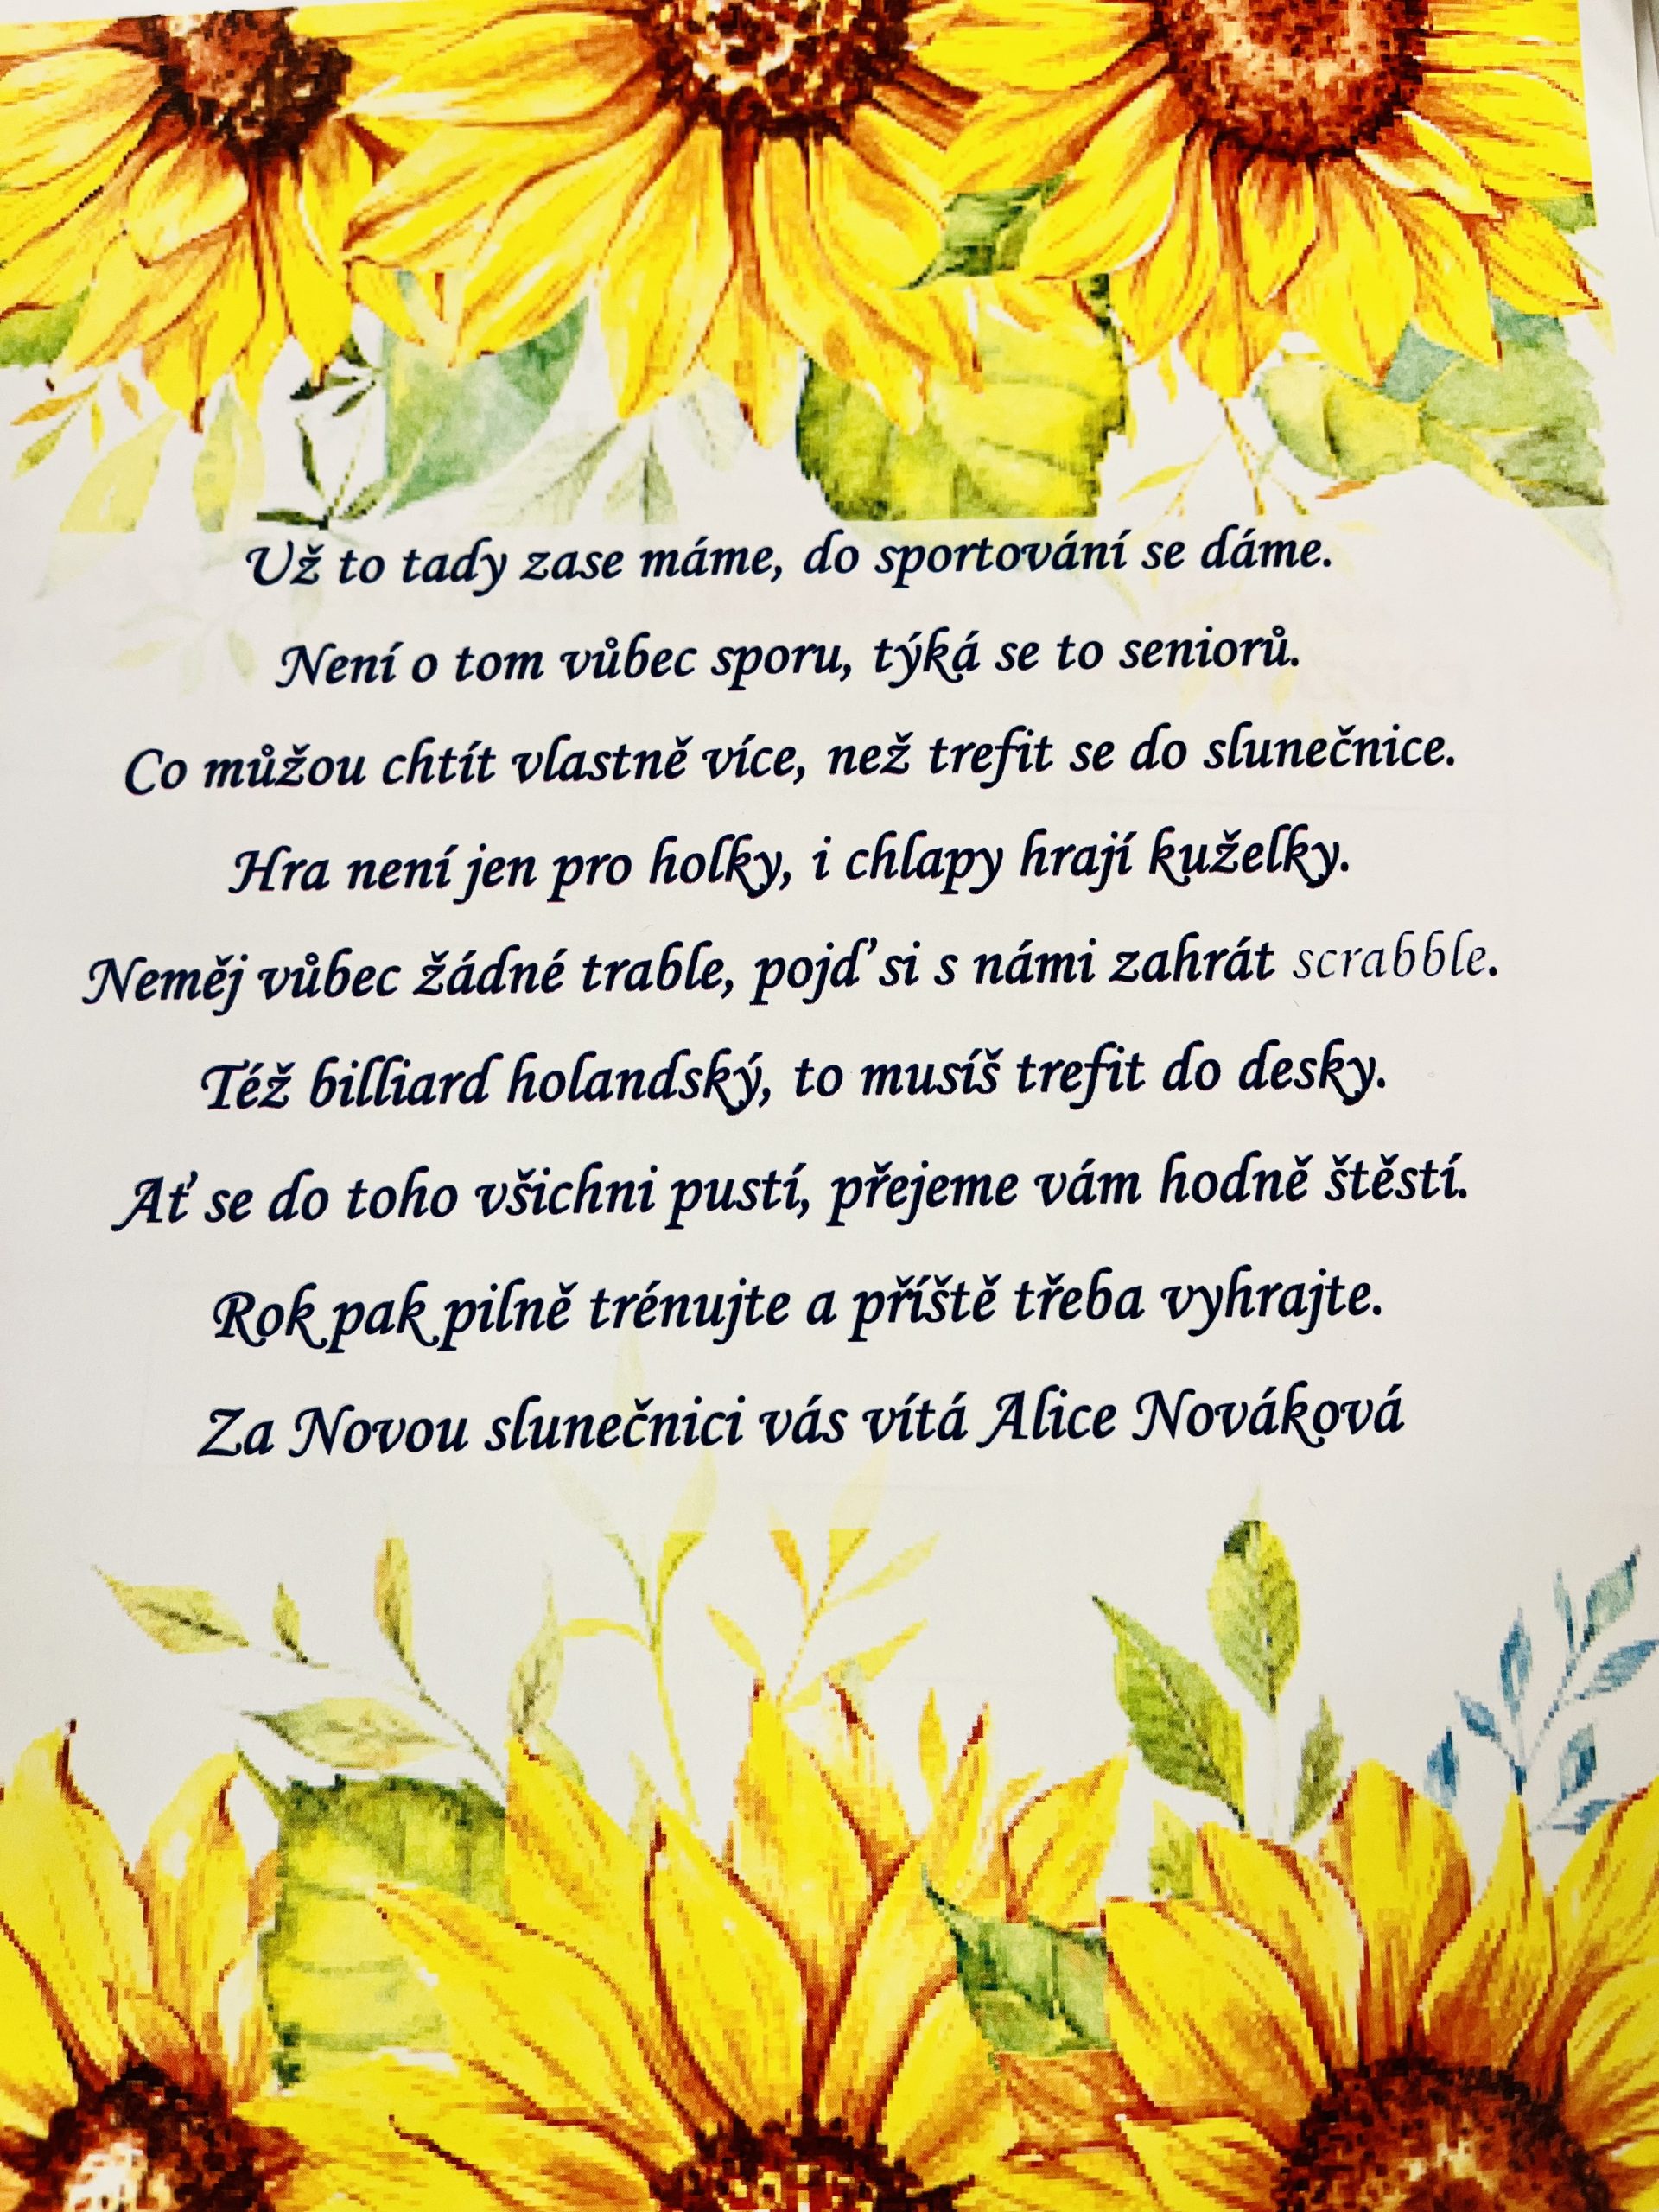 Už to tady zase máme, do sportování se dáme.
Není o tom vůbec sporu, týká se to seniorů.
Co můžou chtít vlastně více, než trefit se do slunečnice.
Hra není jen pro holky, i chlapy hrají kuželky.
Neměj vůbec žádné trable, pojď si s námi zahrát scrabble.
Též billiard holandský, to musíš trefit do desky.
Ať se do toho všichni pustí, přejeme vám hodně štěstí.
Rok pak pilně trénujte a příště třeba vyhrajte.
Za Novou slunečnici vás vítá Alice Nováková